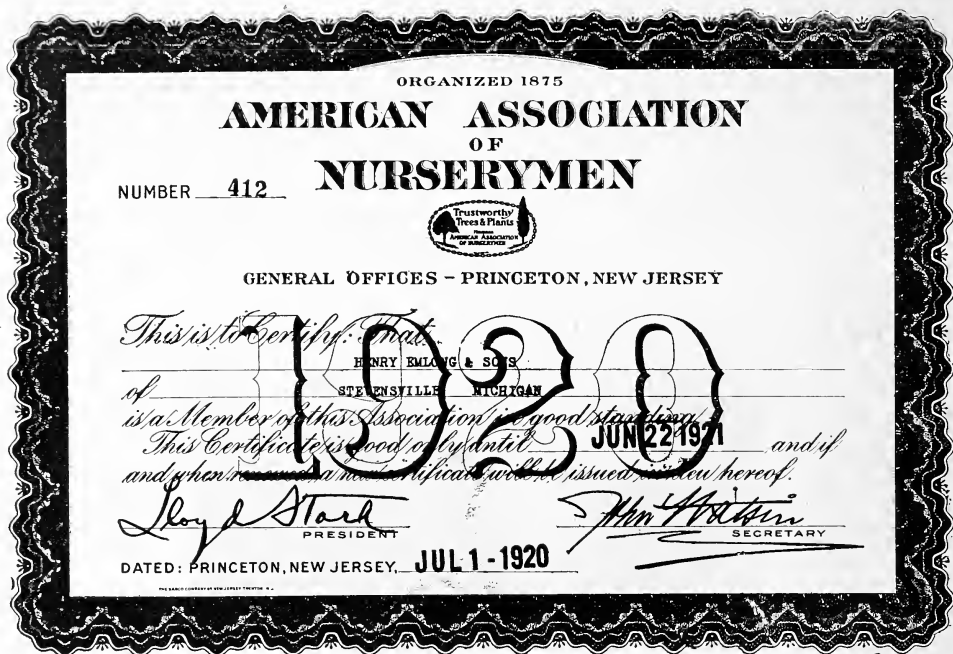 ORGANIZED 1875
AMERICAN ASSOCIATION
OF
NURSERYMEN
NUMBER 412
Trustworthy
Trees & Plants
AMERICAN ASSOCIATION
OF NURSERYMEN
GENERAL OFFICES - PRINCETON, NEW JERSEY
This is to Certify: That
1920
HENRY EMLONG & SONS
of STEVENSVILLE MICHIGAN
is a Member of this Association in good standing
This Certificate is good only until JUN 22 1921 and if
and when renewed a new certificate will be issued in lieu hereof.
Lloyd Stark
PRESIDENT
John Watson
SECRETARY
DATED: PRINCETON, NEW JERSEY, JUL 1 - 1920